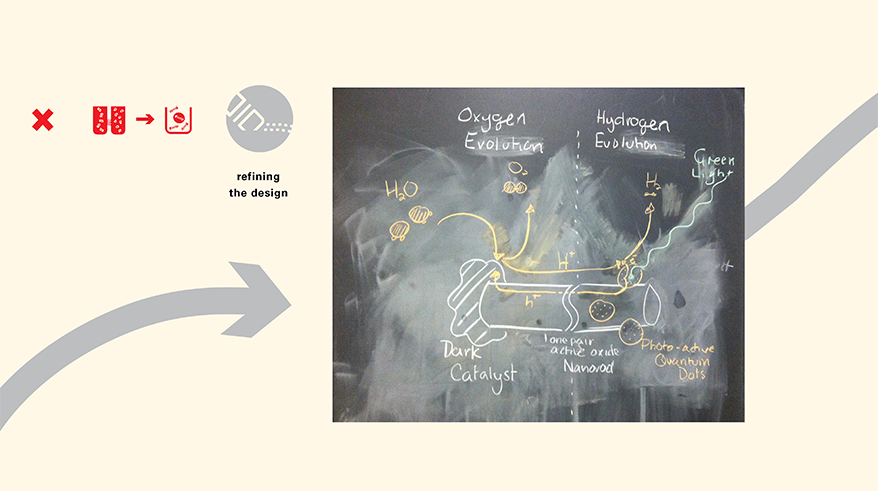 refining
the design
Oxygen
Evolution
Hydrogen
Evolution
Green
Light
H₂O
O₂
H₂
H⁺
h⁺
Dark
Catalyst
lone pair
active oxide
Nanorod
Photo-active
Quantum
Dots